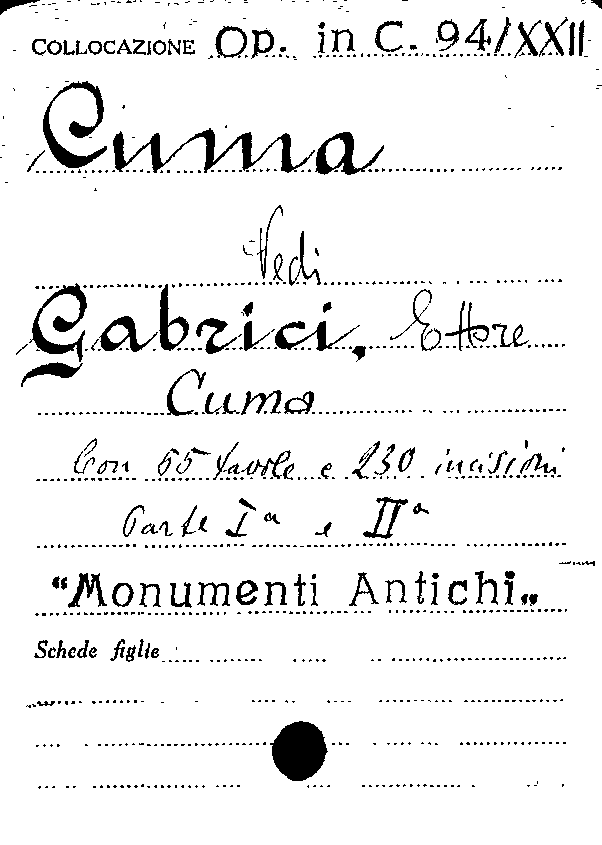 COLLOCAZIONE Op. in C. 94/XXII
Cuma
Vedi
Gabrici, Ettore
Cuma
Con 65 tavole e 230 incisioni
Parte Iª e IIª
“Monumenti Antichi„
Schede figlie